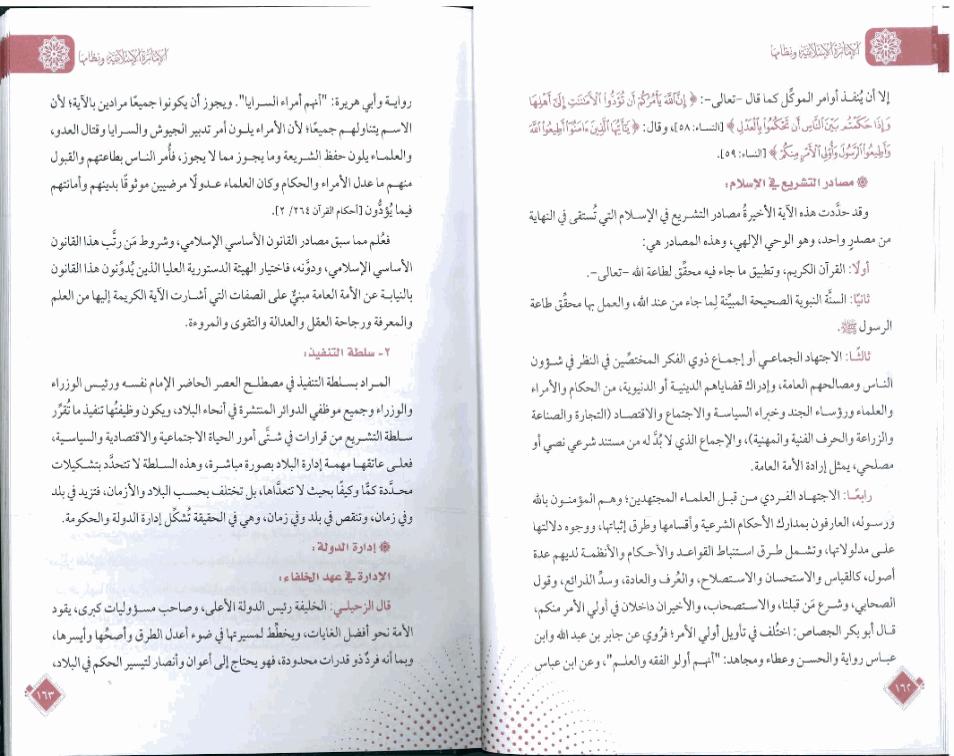 الإمارة الإسلامية ونظامها
إلا أن يُنفذ أوامر الموكِّل كما قال -تعالى-: ﴿ إِنَّ ٱللَّهَ يَأْمُرُكُمْ أَن تُؤَدُّوا۟ ٱلْأَمَٰنَٰتِ إِلَىٰٓ أَهْلِهَا
وَإِذَا حَكَمْتُم بَيْنَ ٱلنَّاسِ أَن تَحْكُمُوا۟ بِٱلْعَدْلِ ﴾ [النساء: ٥٨]، وقال: ﴿ يَٰٓأَيُّهَا ٱلَّذِينَ ءَامَنُوٓا۟ أَطِيعُوا۟ ٱللَّهَ
وَأَطِيعُوا۟ ٱلرَّسُولَ وَأُو۟لِى ٱلْأَمْرِ مِنكُمْ ﴾ [النساء: ٥٩].
مصادر التشريع في الإسلام:
وقد حدَّدت هذه الآية الأخيرةُ مصادر التشريع في الإسلام التي تُستقى في النهاية
من مصدرٍ واحد، وهو الوحي الإلهي، وهذه المصادر هي:
أولًا: القرآن الكريم، وتطبيق ما جاء فيه محقِّق لطاعة الله -تعالى-.
ثانيًا: السنَّة النبوية الصحيحة المبيِّنة لِما جاء من عند الله، والعمل بها محقِّق طاعة
الرسول ﷺ.
ثالثًا: الاجتهاد الجماعي أو إجماع ذوي الفكر المختصِّين في النظر في شؤون
الناس ومصالحهم العامة، وإدراك قضاياهم الدينية أو الدنيوية، من الحكام والأمراء
والعلماء ورؤساء الجند وخبراء السياسة والاجتماع والاقتصاد (التجارة والصناعة
والزراعة والحرف الفنية والمهنية)، والإجماع الذي لا بُدَّ له من مستند شرعي نصي أو
مصلحي، يمثل إرادة الأمة العامة.
رابعًا: الاجتهاد الفردي من قبل العلماء المجتهدين؛ وهم المؤمنون بالله
ورسوله، العارفون بمدارك الأحكام الشرعية وأقسامها وطرق إثباتها، ووجوه دلالتها
على مدلولاتها، وتشمل طرق استنباط القواعد والأحكام والأنظمة لديهم عدة
أصول، كالقياس والاستحسان والاستصلاح، والعُرف والعادة، وسدِّ الذرائع، وقول
الصحابي، وشرع مَن قبلنا، والاستصحاب، والأخيران داخلان في أولي الأمر منكم،
قال أبو بكر الجصاص: اختُلف في تأويل أولي الأمر؛ فرُوي عن جابر بن عبد الله وابن
عباس رواية والحسن وعطاء ومجاهد: "أنهم أولو الفقه والعلم"، وعن ابن عباس
١٦٢
الإمارة الإسلامية ونظامها
رواية وأبي هريرة: "أنهم أمراء السرايا". ويجوز أن يكونوا جميعًا مرادين بالآية؛ لأن
الاسم يتناولهم جميعًا؛ لأن الأمراء يلون أمر تدبير الجيوش والسرايا وقتال العدو،
والعلماء يلون حفظ الشريعة وما يجوز مما لا يجوز، فأُمر الناس بطاعتهم والقبول
منهم ما عدل الأمراء والحكام وكان العلماء عدولًا مرضيين موثوقًا بدينهم وأمانتهم
فيما يُؤدُّون [أحكام القرآن ٢٦٤/ ٢].
فعُلم مما سبق مصادر القانون الأساسي الإسلامي، وشروط مَن رتَّب هذا القانون
الأساسي الإسلامي، ودوَّنه، فاختيار الهيئة الدستورية العليا الذين يُدوِّنون هذا القانون
بالنيابة عن الأمة العامة مبنيٌّ على الصفات التي أشارت الآية الكريمة إليها من العلم
والمعرفة ورجاحة العقل والعدالة والتقوى والمروءة.
٢- سلطة التنفيذ:
المراد بسلطة التنفيذ في مصطلح العصر الحاضر الإمام نفسه ورئيس الوزراء
والوزراء وجميع موظفي الدوائر المنتشرة في أنحاء البلاد، ويكون وظيفتُها تنفيذ ما تُقرِّر
سلطة التشريع من قرارات في شتَّى أمور الحياة الاجتماعية والاقتصادية والسياسية،
فعلى عاتقها مهمة إدارة البلاد بصورة مباشرة، وهذه السلطة لا تتحدَّد بتشكيلات
محدَّدة كمًّا وكيفًا بحيث لا تتعدَّاها، بل تختلف بحسب البلاد والأزمان، فتزيد في بلد
وفي زمان، وتنقص في بلد وفي زمان، وهي في الحقيقة تُشكِّل إدارة الدولة والحكومة.
إدارة الدولة:
الإدارة في عهد الخلفاء:
قال الزحيلي: الخليفة رئيس الدولة الأعلى، وصاحب مسؤوليات كبرى، يقود
الأمة نحو أفضل الغايات، ويخطِّط لمسيرتها في ضوء أعدل الطرق وأصحِّها وأيسرها،
وبما أنه فردٌ ذو قدرات محدودة، فهو يحتاج إلى أعوان وأنصار لتيسير الحكم في البلاد،
١٦٣